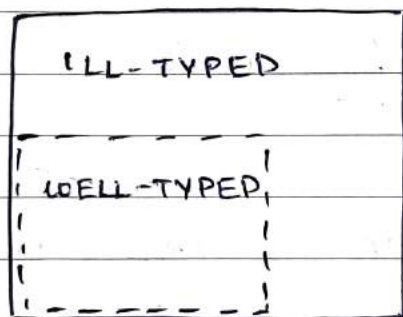 ILL-TYPED
WELL-TYPED